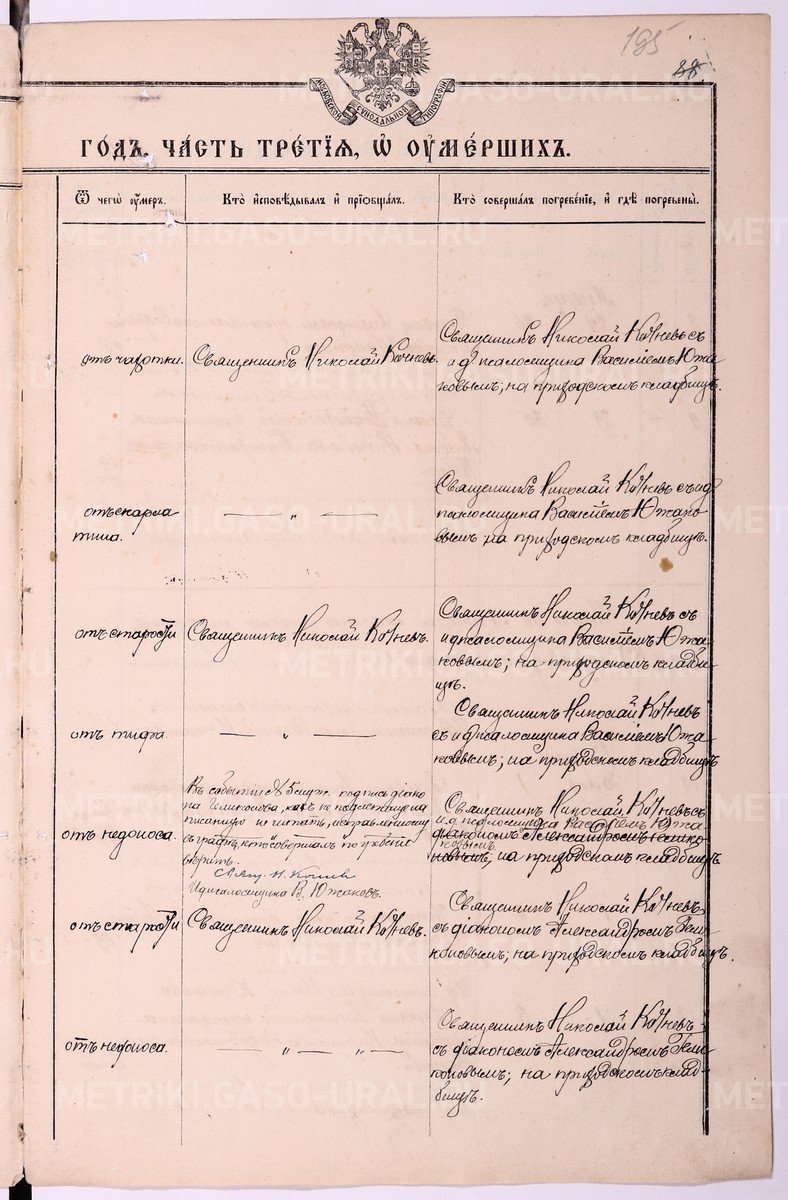 195
88.
МОСКОВСКОЙ СѴНОДАЛЬНОЙ ТИПОГРАФІИ
ГО́ДЪ, ЧА́СТЬ ТРЕ́ТІЯ, Ѽ ОУ҆МЕ́РШИХЪ.
Ѿ чегѡ̀ оу҆́мер.
Кто̀ и҆сповѣ́дывалъ и҆ прїѡбща́лъ.
Кто̀ соверша́лъ погребе́нїе, и҆ гдѣ̀ погребены̀.
отъ чахотки.
Священникъ Николай Кочневъ.
Священникъ Николай Кочневъ съ
и д псаломщика Василіемъ Южа
ковымъ; на приходскомъ кладбищѣ.
отъ скарла
тина.
— „ —
Священникъ Николай Кочневъ съ и д
псаломщика Василіемъ Южако
вымъ на приходскомъ кладбищѣ.
отъ старости
Священникъ Николай Кочневъ.
Священникъ Николай Кочневъ съ
и д псаломщика Василіемъ Южа
ковымъ; на приходскомъ кладби
щѣ.
отъ тифа
— „ —
Священникъ Николай Кочневъ
съ и д псаломщика Василіемъ Южа
ковымъ; на приходскомъ кладбищѣ
отъ недоноса.
Въ событіи № 5 подпись діако
на Геликонова, какъ не подлежащую на
писанную не читать, исправленному
въ графѣ, „кто совершалъ погребеніе
вѣрить.
Свящ. Н. Кочнев
И д псаломщика В. Южаковъ.
Священникъ Николай Кочневъ съ
и.д. псаломщика Василіемъ Южа
ковымъ
діакономъ Александромъ Гелико
новымъ; на приходскомъ кладбищѣ
отъ старости
Священникъ Николай Кочневъ.
Священникъ Николай Кочневъ
съ діакономъ Александромъ Гели
коновымъ; на приходскомъ кладбищѣ.
отъ недоноса.
— „ — „ —
Священникъ Николай Кочневъ
съ діакономъ Александромъ Гели
коновымъ; на приходскомъ клад-
бищѣ.
METRIKI.GASO-URAL.RU